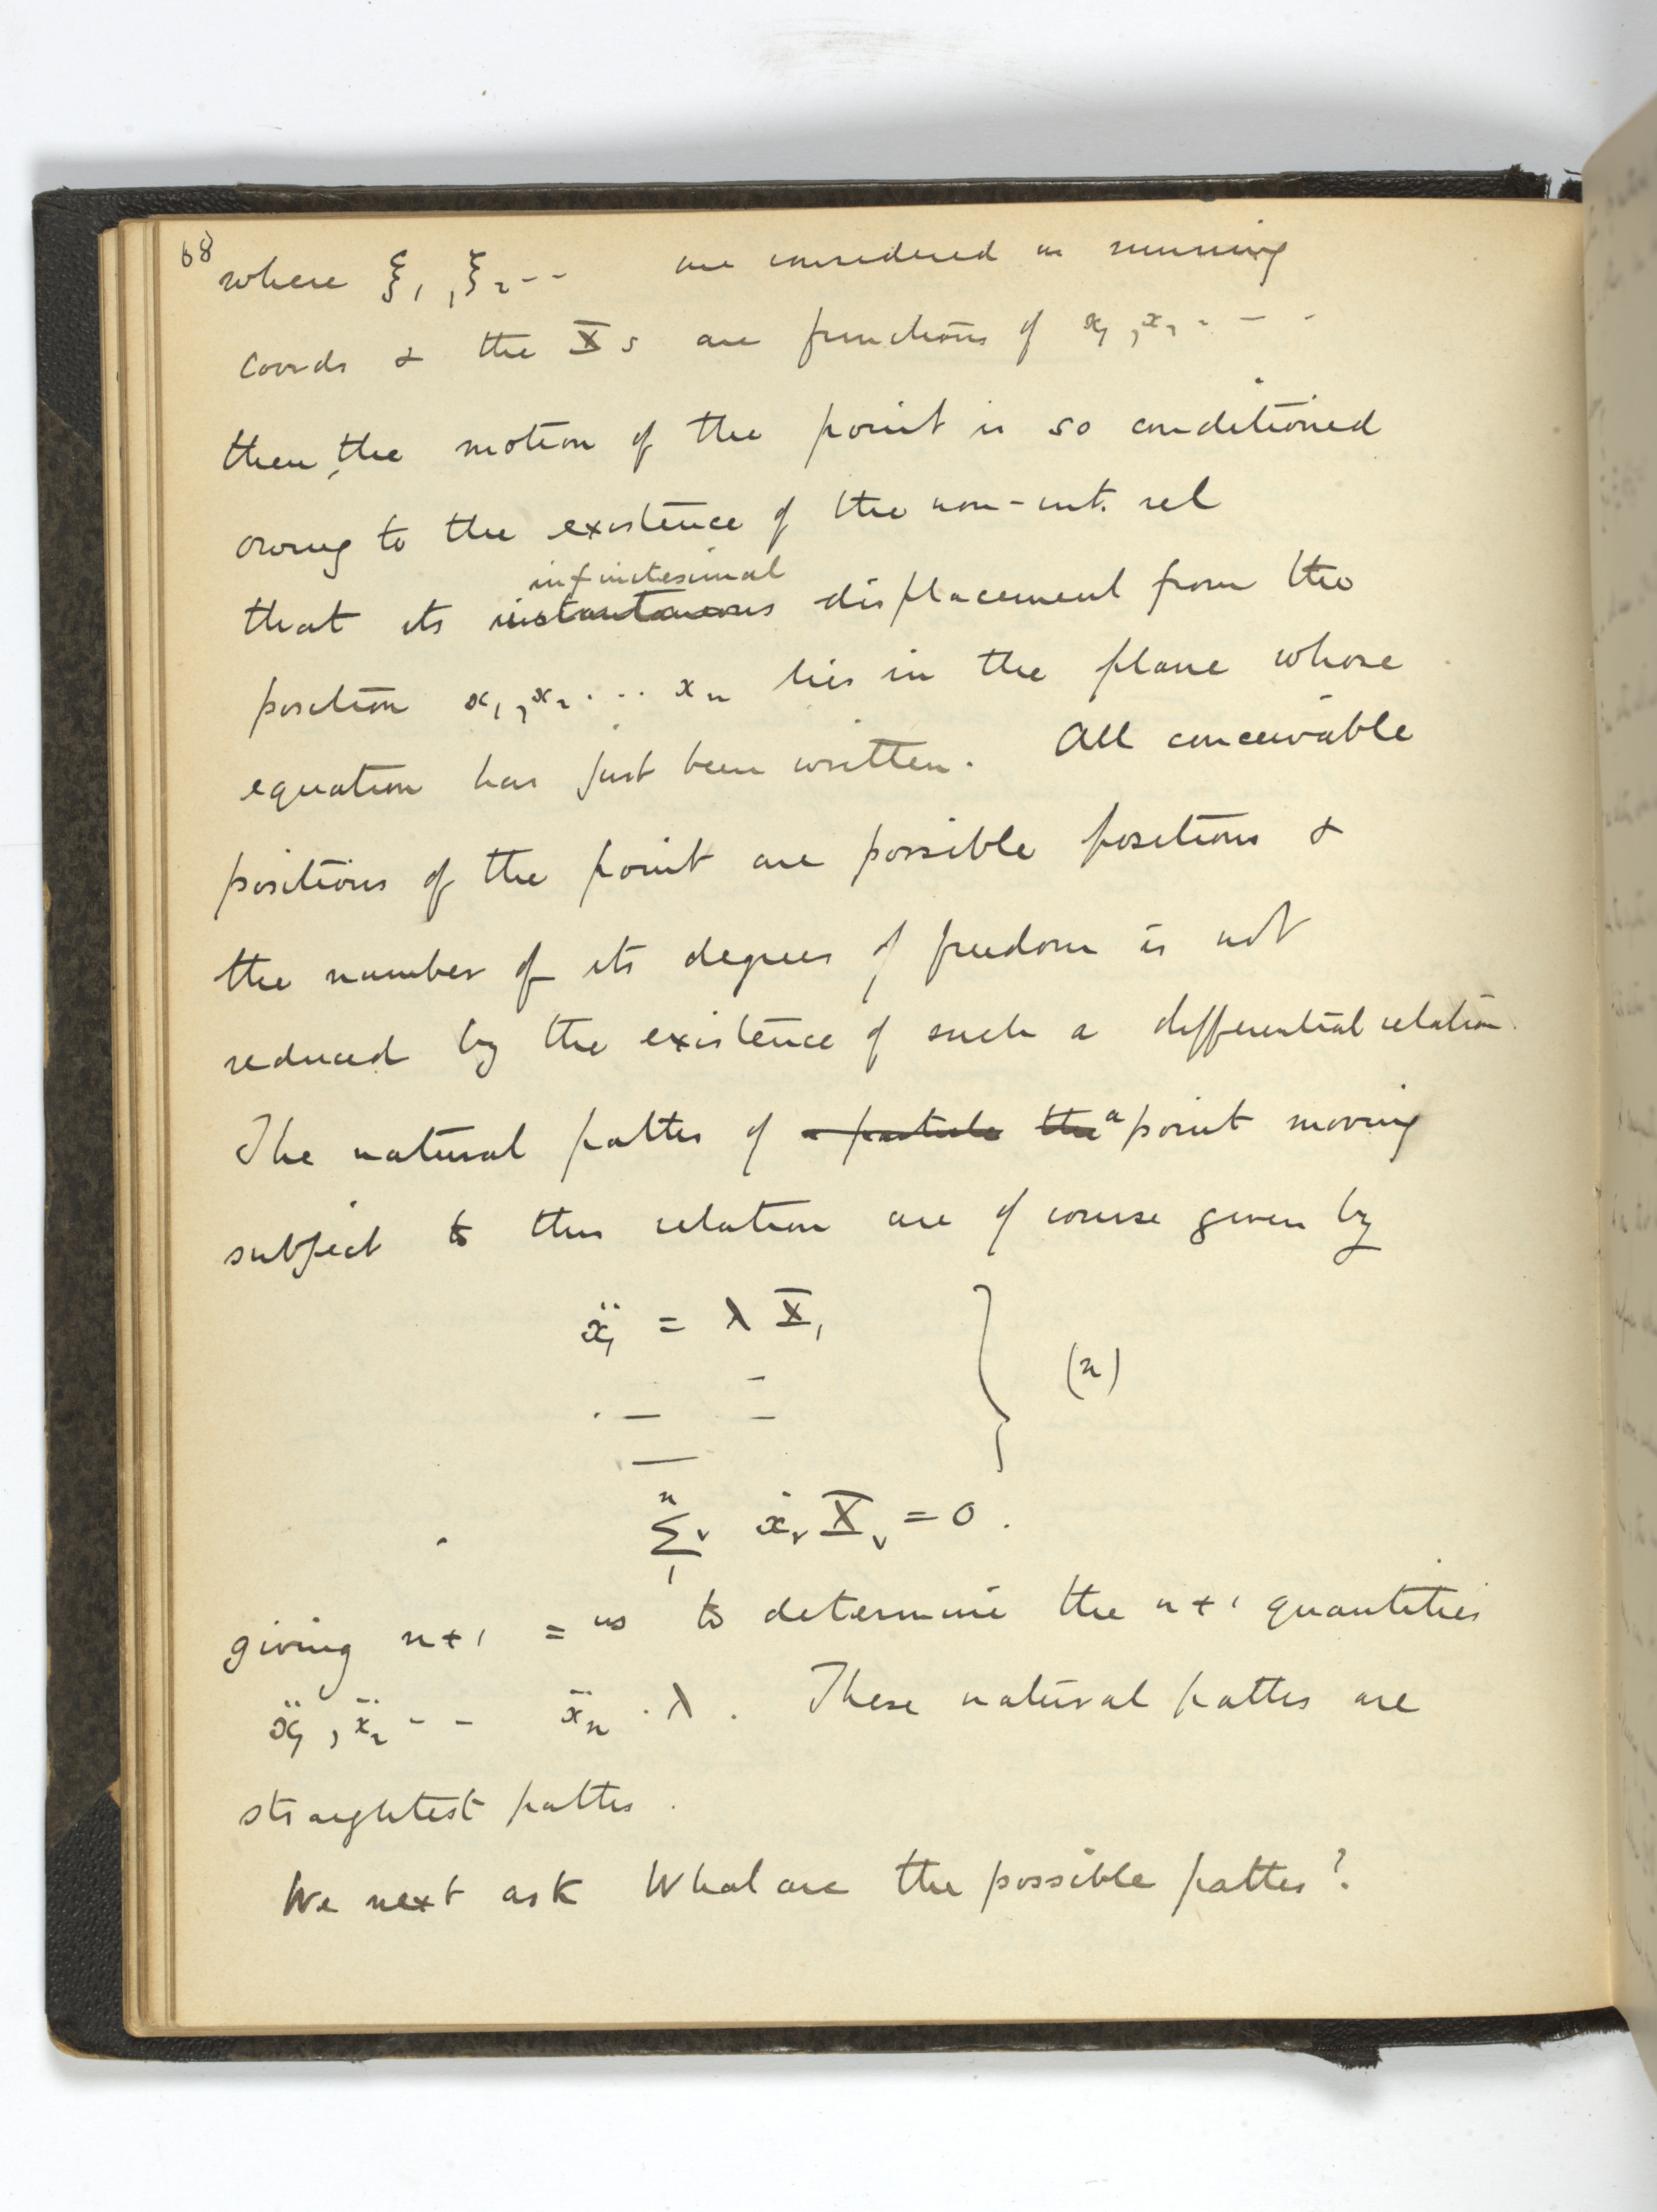 68
where ξ₁, ξ₂ -- are considered as running
coords & the X s are functions of x₁, x₂ - - -
then, the motion of the point is so conditioned
owing to the existence of the non-int. rel
infinitesimal
that its instantaneous displacement from the
position x₁, x₂ . . . xₙ lies in the plane whose
equation has just been written. All conceivable
positions of the point are possible positions &
the number of its degrees of freedom is not
reduced by the existence of such a differential relation.
The natural paths of a particle the a point moving
subject to this relation are of course given by
ẍ₁ = λ X₁
(n)
n
Σν ẋν Xν = 0 .
1
giving n+1 =ns to determine the n+1 quantities
ẍ₁, ẍ₂ - - ẍₙ . λ . These natural paths are
straightest paths .
We next ask What are the possible paths ?